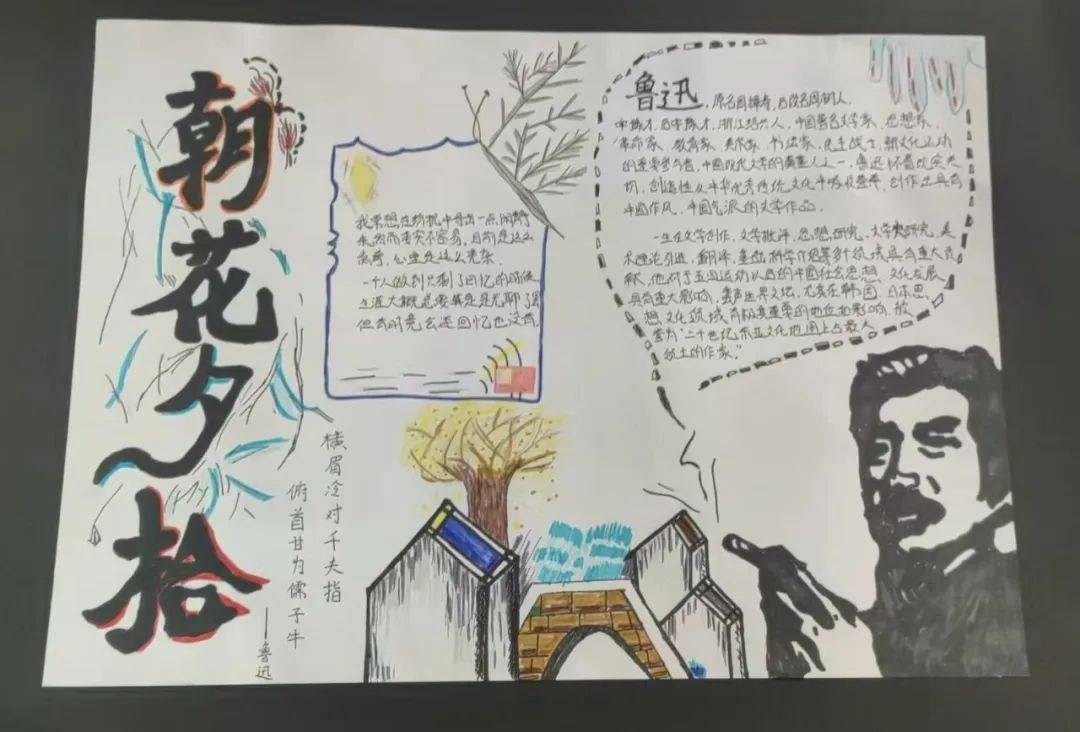 朝花夕拾
横眉冷对千夫指
俯首甘为儒子牛
——鲁迅
我常想在纷扰中寻出一点闲静
来,然而委实不容易。目前是这么
离奇,心里是这么芜杂。
一个人做到只剩了回忆的时候
生涯大概总要算是无聊了罢
但有时竟会连回忆也没有。
鲁迅,原名周樟寿,后改名周树人,
字豫才,浙江绍兴人,中国著名文学家、思想家、
革命家、教育家、美术家、书法家、民主战士,新文化运动
的重要参与者,中国现代文学的奠基人之一。鲁迅怀着
切,创造性从中华优秀传统文化中吸收营养,创作出具有
中国作风、中国气派的文学作品。
一生在文学创作、文学批评、思想研究、文学史研究、美
术理论引进、翻译、基础科学介绍等多个领域具有重大贡
献,他对于五四运动以后的中国社会思想、文化发展
具有重大影响,蜚声世界文坛,尤其在韩国、日本思
想文化领域有极其重要的地位和影响,被
誉为"二十世纪东亚文化地图上占最大
领土的作家。"